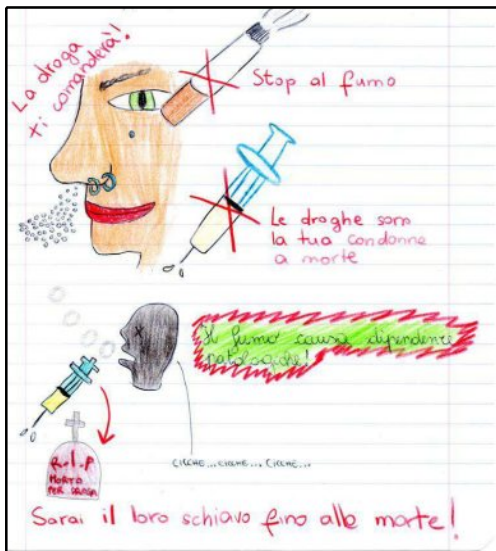 La droga
ti comanderà!
Stop al fumo
Le droghe sono
la tua condanna
a morte
Il fumo causa dipendenze
patologiche!
R.I.P
MORTO
PER DROGA
CICCHE... CICCHE... CICCHE...
Sarai il loro schiavo fino alla morte!